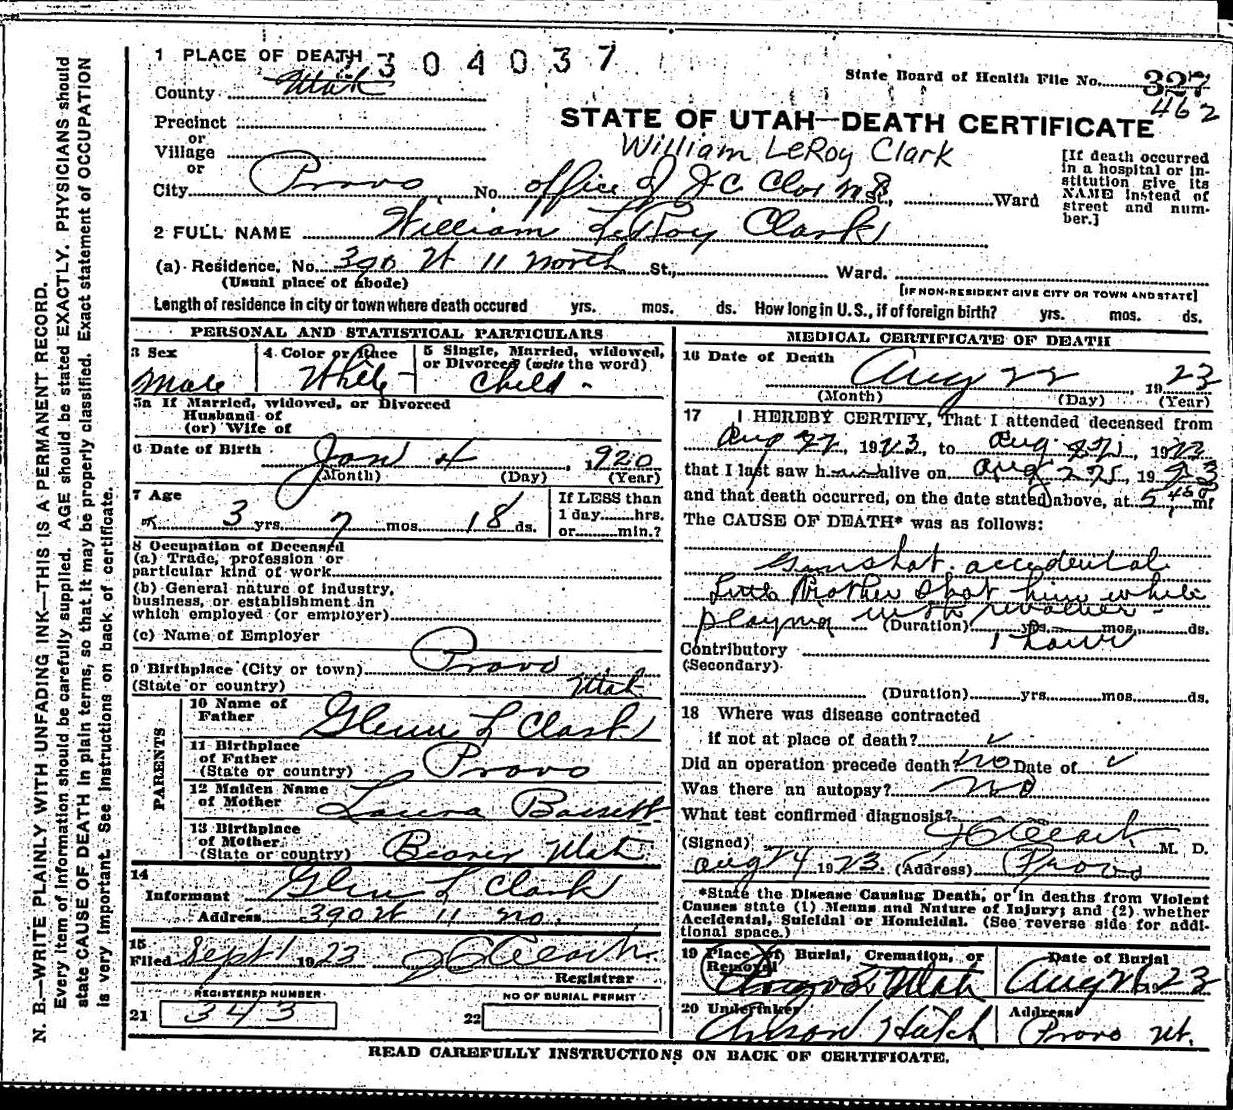 1 PLACE OF DEATH 2304037
State Board of Health File No. 327
462
County Utah
STATE OF UTAH—DEATH CERTIFICATE
Precinct
or
Village
or
William LeRoy Clark
[If death occurred in a hospital or institution give its NAME instead of street and number.]
City Provo No. office of J C St., Ward
2 FULL NAME William LeRoy Clark
(a) Residence. No. 390 W 11 North St., Ward.
(Usual place of abode) [IF NON-RESIDENT GIVE CITY OR TOWN AND STATE]
Length of residence in city or town where death occured yrs. mos. ds. How long in U.S., if of foreign birth? yrs. mos. ds.
PERSONAL AND STATISTICAL PARTICULARS
3 Sex
Male
4 Color or Race
White
5 Single, Married, widowed, or Divorced (write the word)
Child
5a If Married, widowed, or Divorced
Husband of
(or) Wife of
6 Date of Birth Jan 4, 1920
(Month) (Day) (Year)
7 Age
3 yrs. 7 mos. 18 ds.
If LESS than
1 day hrs.
or min.?
8 Occupation of Deceased
(a) Trade, profession or
particular kind of work
(b) General nature of industry,
business, or establishment in
which employed (or employer)
(c) Name of Employer
9 Birthplace (City or town) Provo
(State or country) Utah
PARENTS
10 Name of
Father Glenn L Clark
11 Birthplace
of Father
(State or country) Provo
12 Maiden Name
of Mother Laura Bassett
13 Birthplace
of Mother
(State or country) Beaver Utah
14
Informant Glen L Clark
Address 390 W 11 no.
15
Filed Sept 1 1923
Registrar
REGISTERED NUMBER
21 343
NO OF BURIAL PERMIT
22
MEDICAL CERTIFICATE OF DEATH
16 Date of Death Aug 22 1923
(Month) (Day) (Year)
17 I HEREBY CERTIFY, That I attended deceased from
Aug 22, 1923, to Aug 22, 1923
that I last saw h alive on Aug 22, 1923
and that death occurred, on the date stated above, at m
The CAUSE OF DEATH* was as follows:
Gunshot accidental
Little Brother Shot him while
playing with revolver -
(Duration) yrs. mos. ds.
1 hour
Contributory
(Secondary)
(Duration) yrs. mos. ds.
18 Where was disease contracted
if not at place of death?
Did an operation precede death? no Date of
Was there an autopsy? no
What test confirmed diagnosis?
(Signed) M. D.
Aug 24 1923. (Address) Provo
*State the Disease Causing Death, or in deaths from Violent
Causes state (1) Means and Nature of Injury; and (2) whether
Accidental, Suicidal or Homicidal. (See reverse side for additional space.)
19 Place of Burial, Cremation, or
Removal
Utah
Date of Burial
Aug 26 1923
20 Undertaker
Anson Hatch
Address
Provo Ut.
READ CAREFULLY INSTRUCTIONS ON BACK OF CERTIFICATE.
N. B.—WRITE PLAINLY WITH UNFADING INK—THIS IS A PERMANENT RECORD.
Every item of information should be carefully supplied. AGE should be stated EXACTLY. PHYSICIANS should
state CAUSE OF DEATH in plain terms, so that it may be properly classified. Exact statement of OCCUPATION
is very important. See instructions on back of certificate.